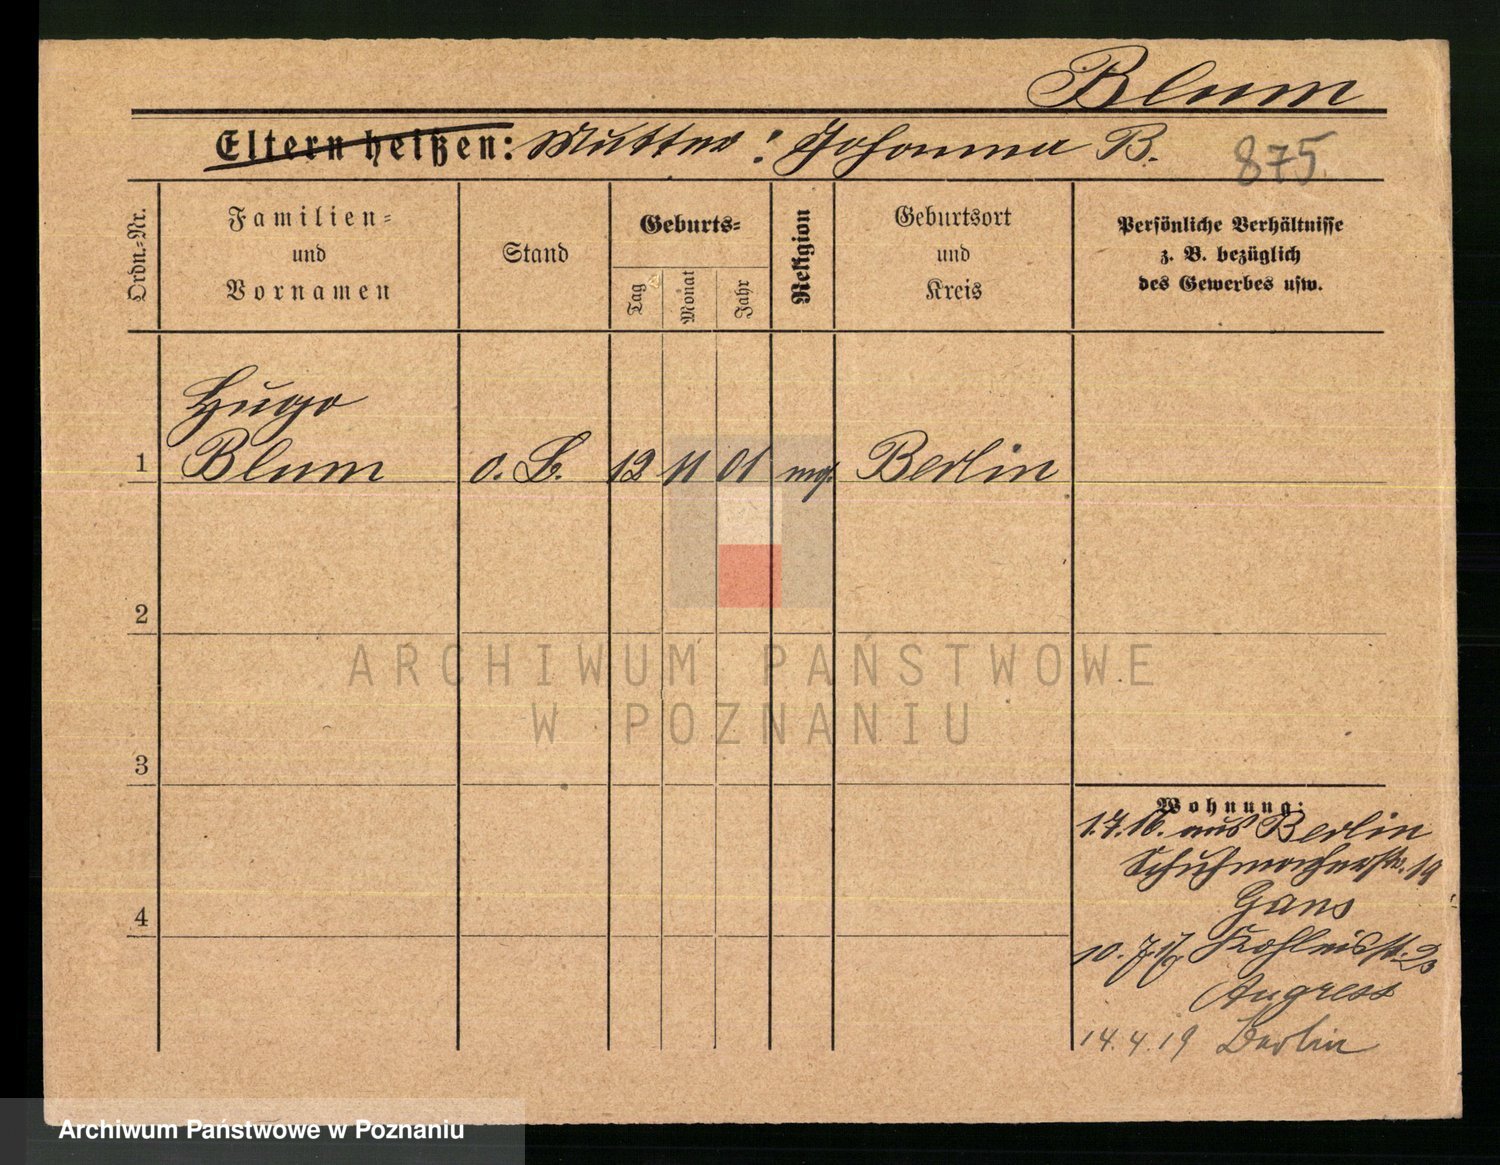 Blum
Eltern heißen: Mutter: Johanna B. 875.
Ordn.-Nr.
Familien-
und
Vornamen
Stand
Geburts-
Tag
Monat
Jahr
Religion
Geburtsort
und
Kreis
Persönliche Verhältnisse
z. B. bezüglich
des Gewerbes usw.
Hugo
1 Blum o. B. 12 11 01 Berlin
2
3
4
Wohnung:
1.7.16. aus Berlin
Schuhmacherstr. 19
Gans
10. 7 17
Angress
14.4.19 Berlin
ARCHIWUM PAŃSTWOWE
W POZNANIU
Archiwum Państwowe w Poznaniu